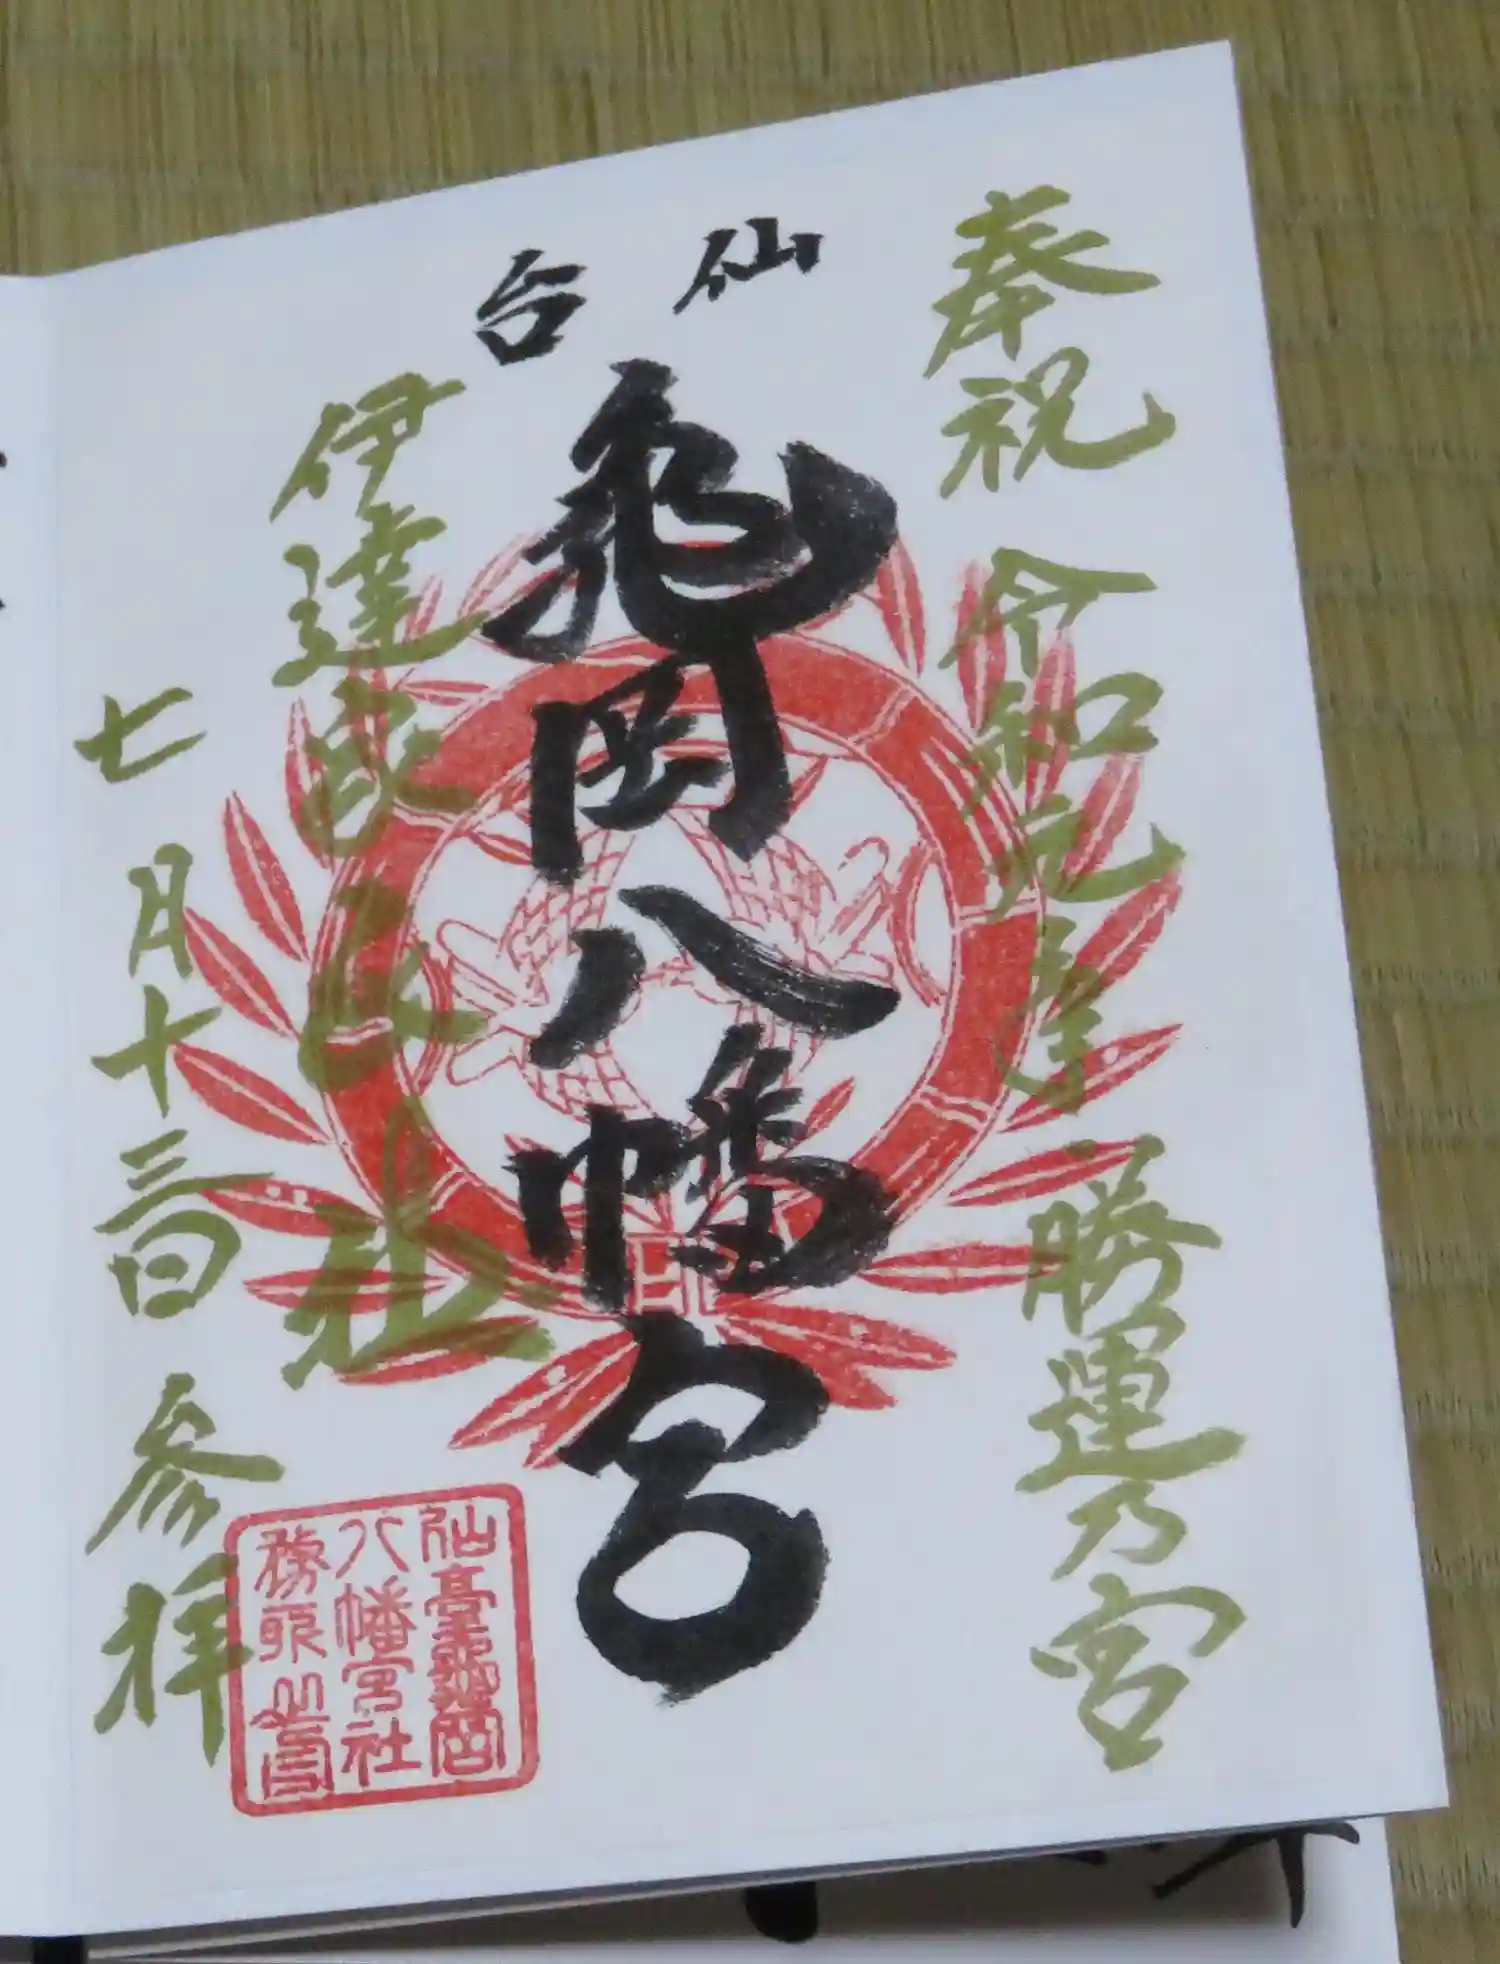 奉祝 令和元年 勝運乃宮
仙台
亀岡八幡宮
伊達
七月十三日 参拝
仙臺龜岡
八幡宮社
務所之印